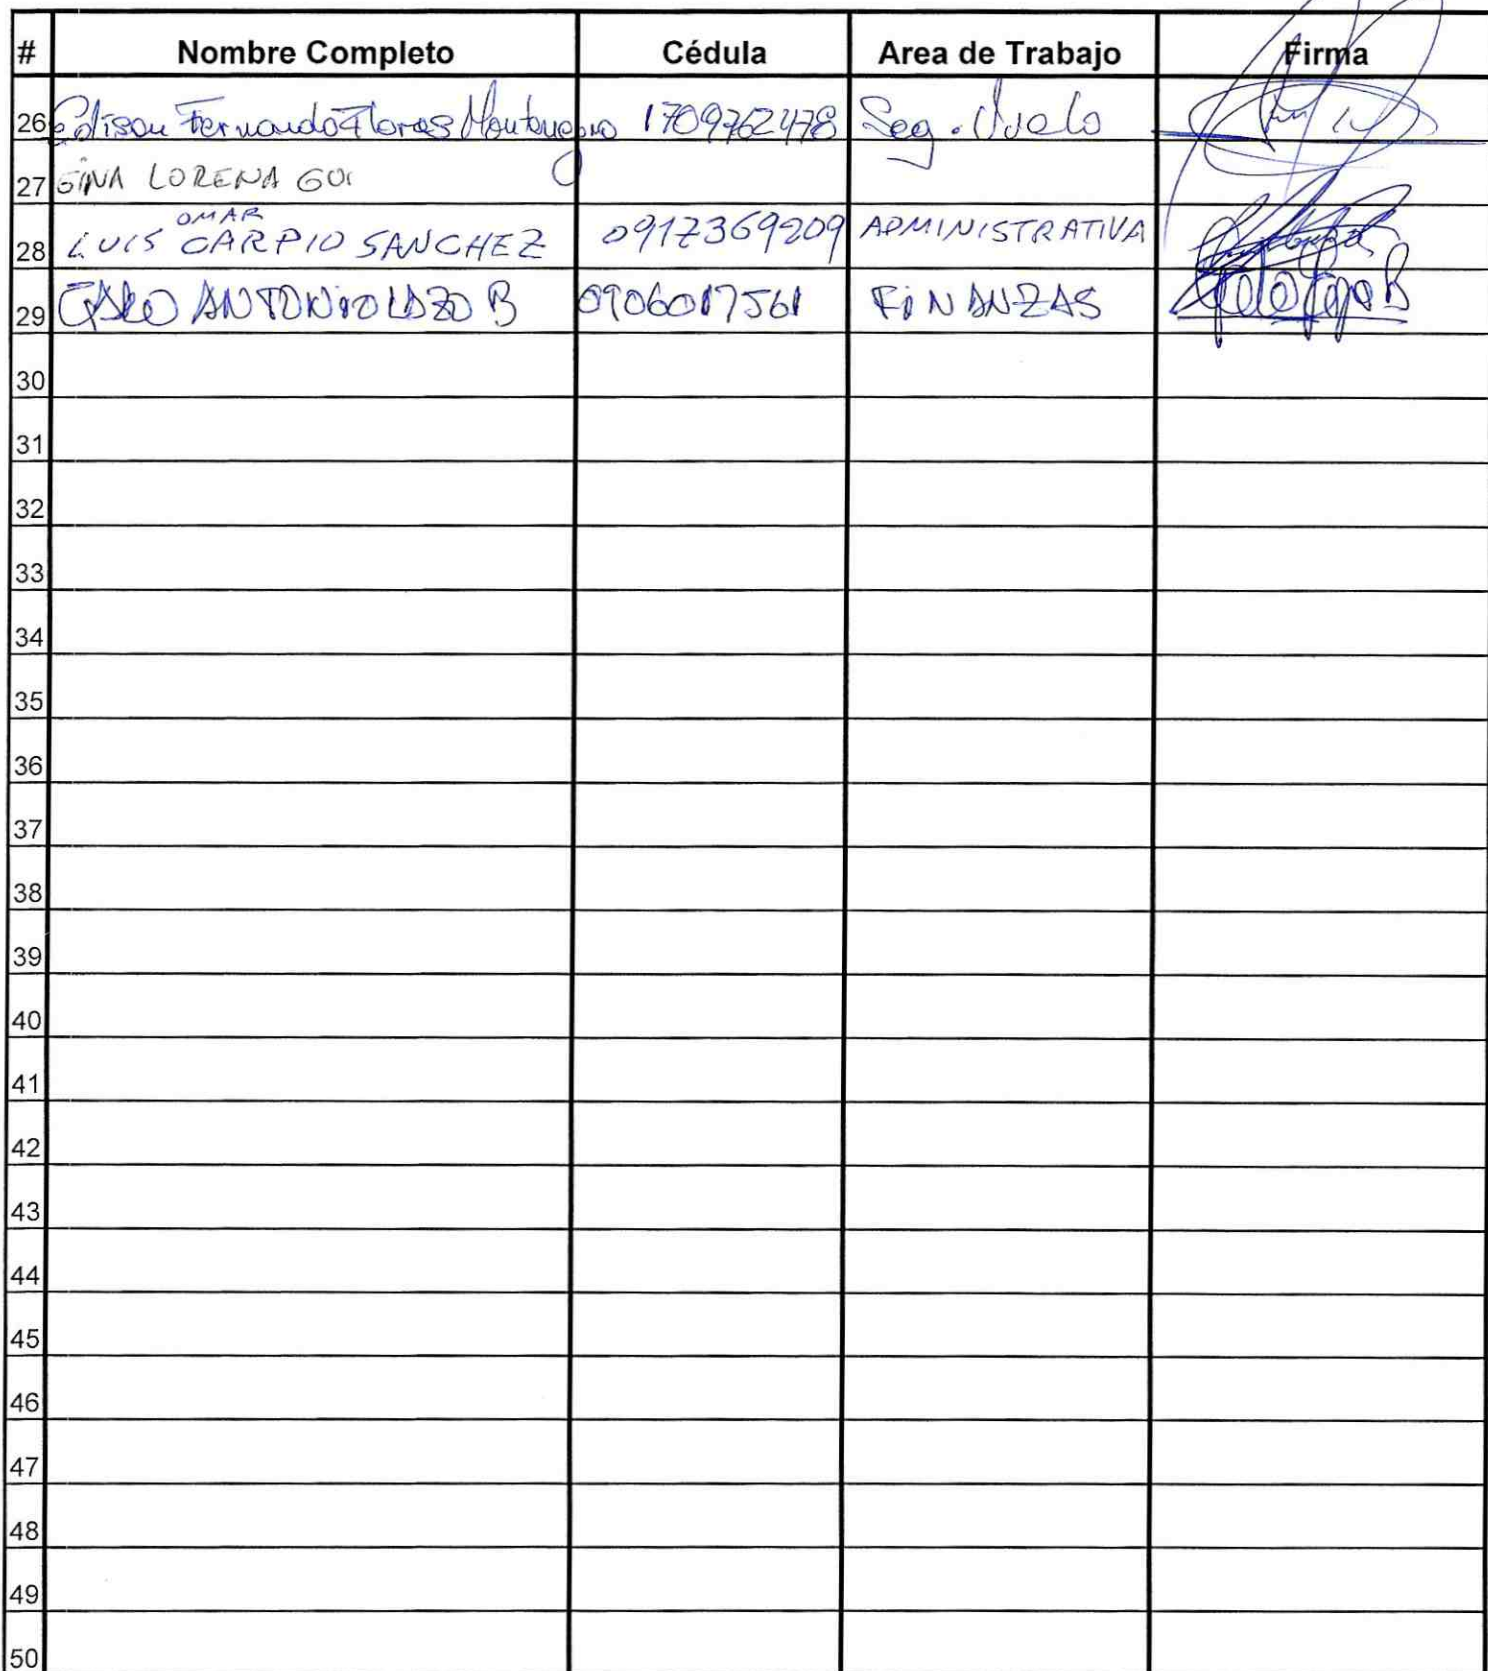 # Nombre Completo Cédula Area de Trabajo Firma
26 Edison Fernando Flores Montenegro 1709762478 Seg. Vuelo
27 GINA LORENA GUI
OMAR
28 LUIS CARPIO SANCHEZ 0917369209 ADMINISTRATIVA
29 GALO ANTONIO LAZO B 0906017561 FINANZAS
30
31
32
33
34
35
36
37
38
39
40
41
42
43
44
45
46
47
48
49
50